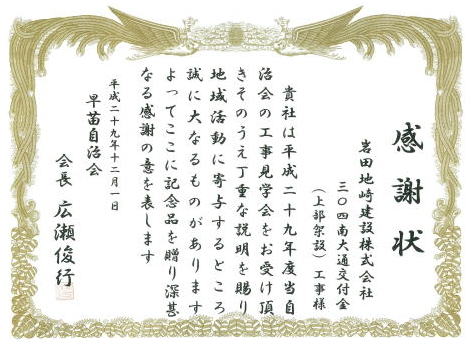 感謝状
岩田地崎建設株式会社
三〇四南大通交付金
（上部架設）工事様
貴社は平成二十九年度当自
治会の工事見学会をお受け頂
きそのうえ丁重な説明を賜り
地域活動に寄与するところ
誠に大なるものがあります
よってここに記念品を贈り深甚
なる感謝の意を表します
平成二十九年十二月一日
早苗自治会
会長 広瀬俊行